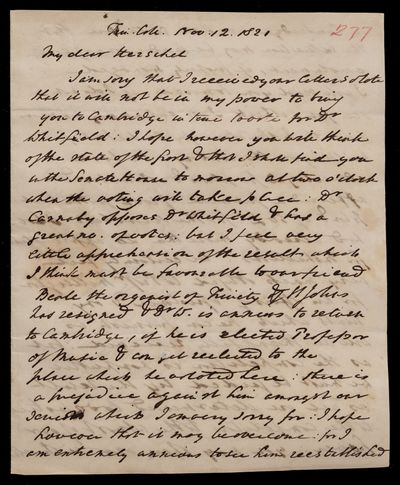 Trin. Coll. Nov. 12. 1821 277
My dear Herschel
I am sorry that I received your letter so late
that it will not be in my power to bring
you to Cambridge in time to vote for Dr
Whitfield: I hope however you will think
of the state of the & that I shall find you
in the Senate House to morrow at two o'clock
when the voting will take place: Dr
Carnaby opposes Dr Whitfield & has a
great no. of votes: but I feel very
little apprehension of the result which
I think must be favorable to our friend
Beale the organist of Trinity & St Johns
has resigned & Dr W. is anxious to return
to Cambridge, if he is elected Professor
of Music & can get reelected to the
place which he acted here: there is
a prejudice against him amongst our
Seniors which I am very sorry for: I hope
however that it may be overcome: for I
am extremely anxious to see him reestablished